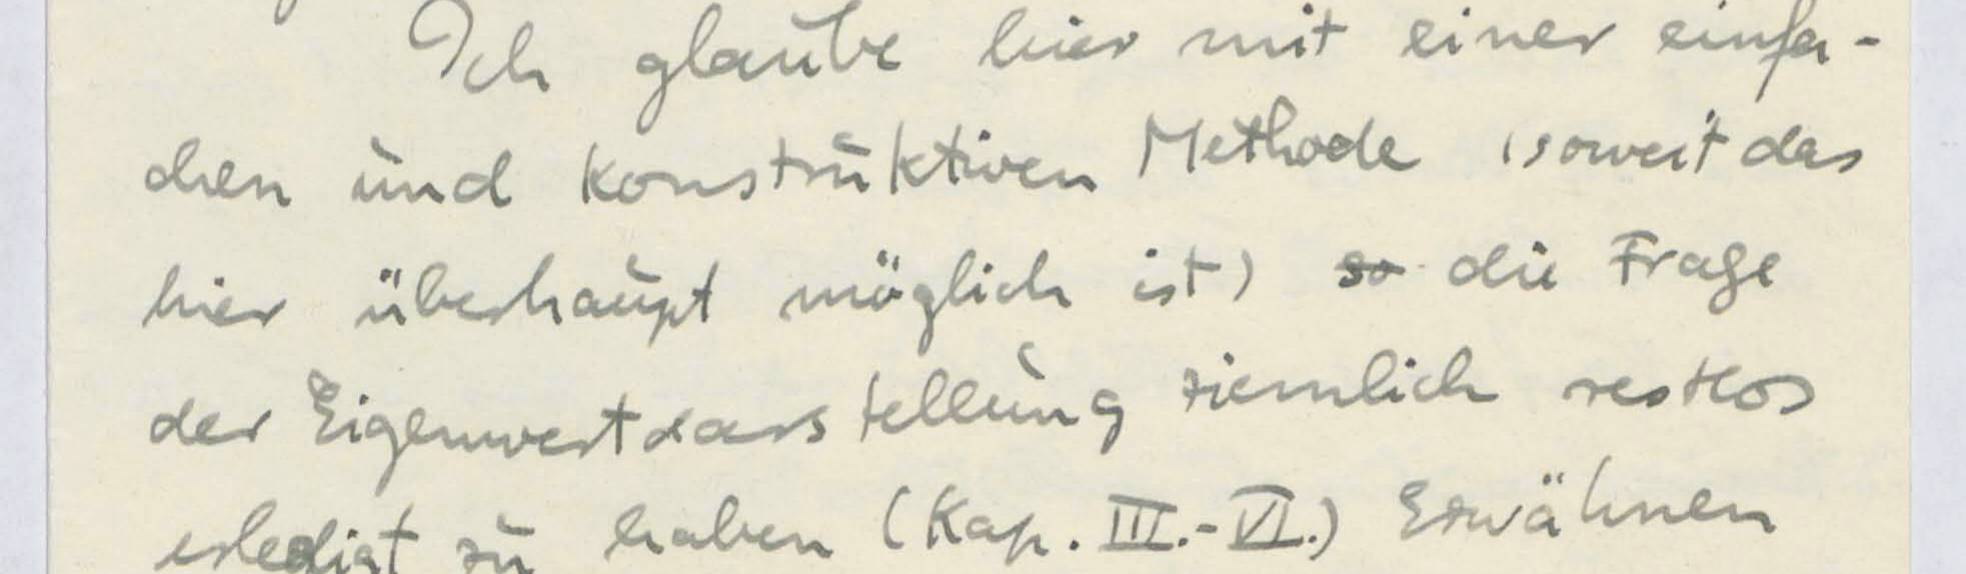 Ich glaube hier mit einer einfa-
chen und konstruktiven Methode (soweit das
hier überhaupt möglich ist) so die Frage
der Eigenwertdarstellung ziemlich restlos
erledigt zu haben (Kap. III.-VI.) Erwähnen